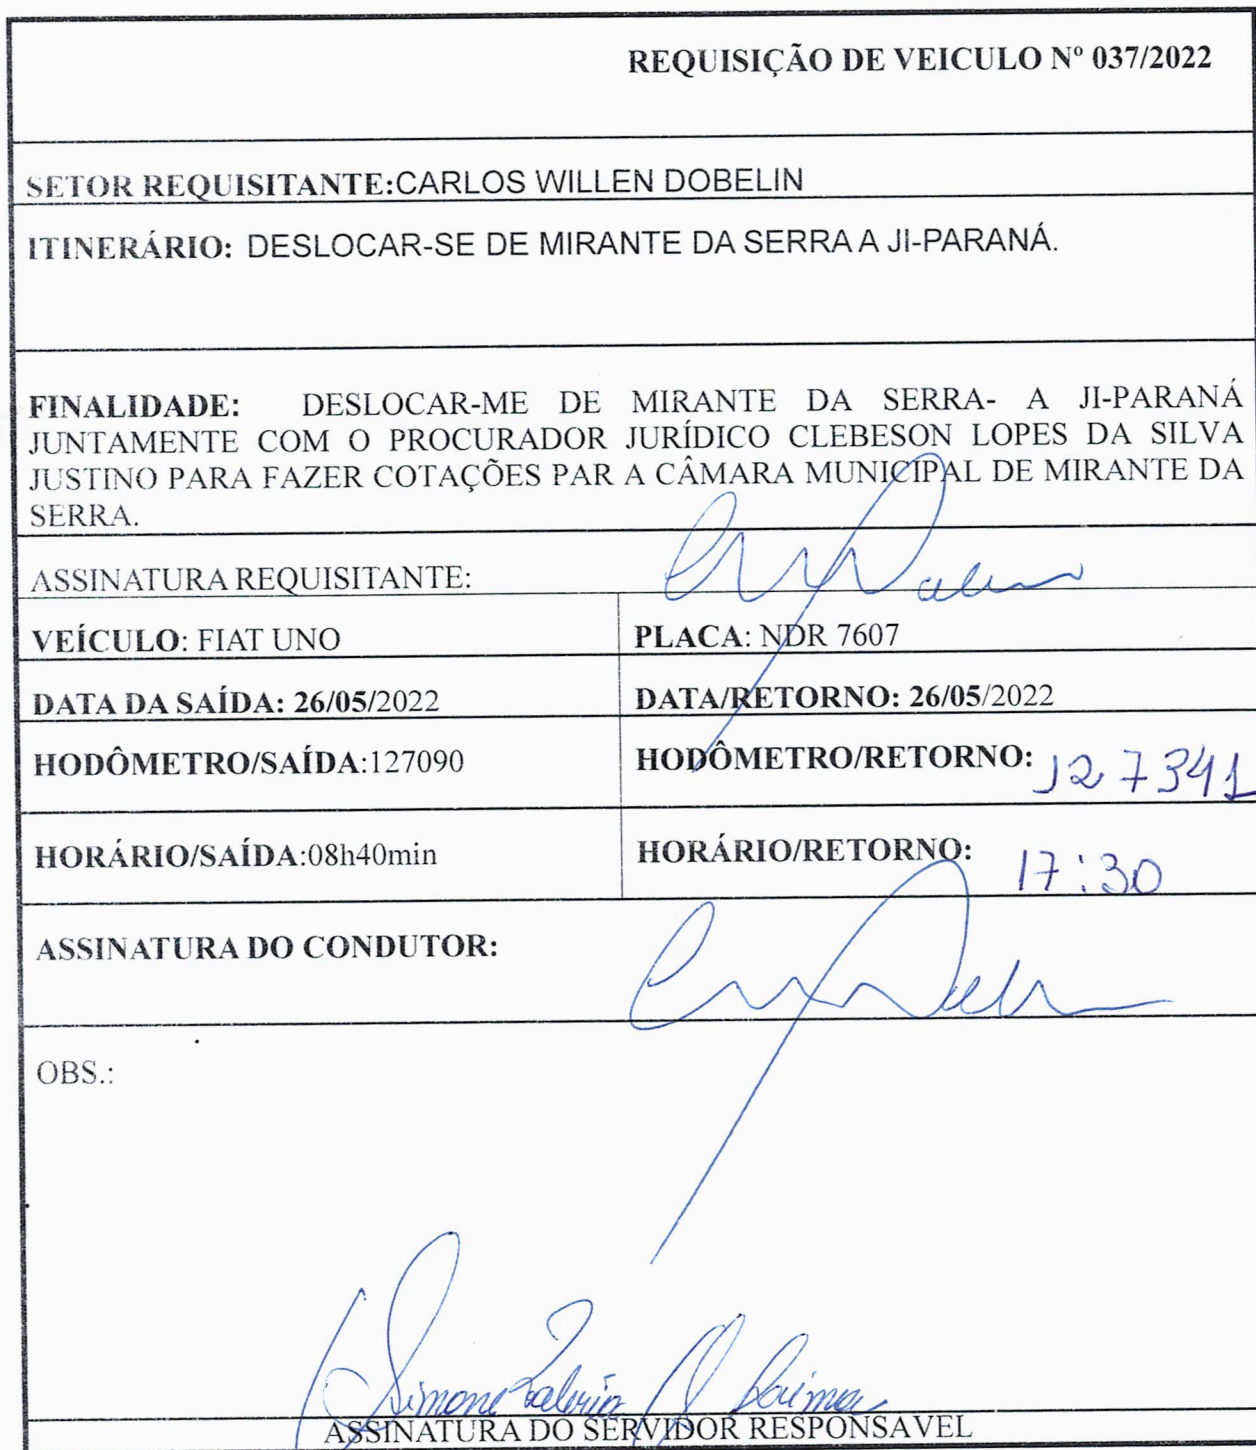 REQUISIÇÃO DE VEICULO Nº 037/2022
SETOR REQUISITANTE:CARLOS WILLEN DOBELIN
ITINERÁRIO: DESLOCAR-SE DE MIRANTE DA SERRA A JI-PARANÁ.
FINALIDADE: DESLOCAR-ME DE MIRANTE DA SERRA- A JI-PARANÁ
JUNTAMENTE COM O PROCURADOR JURÍDICO CLEBESON LOPES DA SILVA
JUSTINO PARA FAZER COTAÇÕES PAR A CÂMARA MUNICIPAL DE MIRANTE DA
SERRA.
ASSINATURA REQUISITANTE:
VEÍCULO: FIAT UNO PLACA: NDR 7607
DATA DA SAÍDA: 26/05/2022 DATA/RETORNO: 26/05/2022
HODÔMETRO/SAÍDA:127090 HODÔMETRO/RETORNO: 127341
HORÁRIO/SAÍDA:08h40min HORÁRIO/RETORNO: 17:30
ASSINATURA DO CONDUTOR:
OBS.:
Simone
ASSINATURA DO SERVIDOR RESPONSAVEL